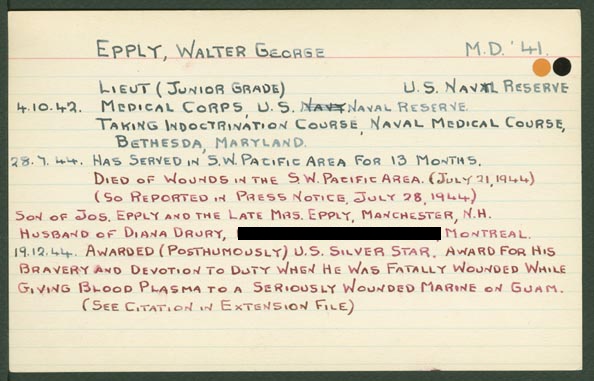 EPPLY, WALTER GEORGE M.D. '41.
LIEUT (JUNIOR GRADE) U.S. NAVAL RESERVE
4.10.42. MEDICAL CORPS, U.S. NAVY NAVAL RESERVE.
TAKING INDOCTRINATION COURSE, NAVAL MEDICAL COURSE,
BETHESDA, MARYLAND.
28.7.44. HAS SERVED IN S.W. PACIFIC AREA FOR 13 MONTHS.
DIED OF WOUNDS IN THE S.W. PACIFIC AREA. (JULY 21, 1944)
(SO REPORTED IN PRESS NOTICE, JULY 28, 1944)
SON OF JOS. EPPLY AND THE LATE MRS. EPPLY, MANCHESTER, N.H.
HUSBAND OF DIANA DRURY, MONTREAL.
19.12.44. AWARDED (POSTHUMOUSLY) U.S. SILVER STAR. AWARD FOR HIS
BRAVERY AND DEVOTION TO DUTY WHEN HE WAS FATALLY WOUNDED WHILE
GIVING BLOOD PLASMA TO A SERIOUSLY WOUNDED MARINE ON GUAM.
(SEE CITATION IN EXTENSION FILE)